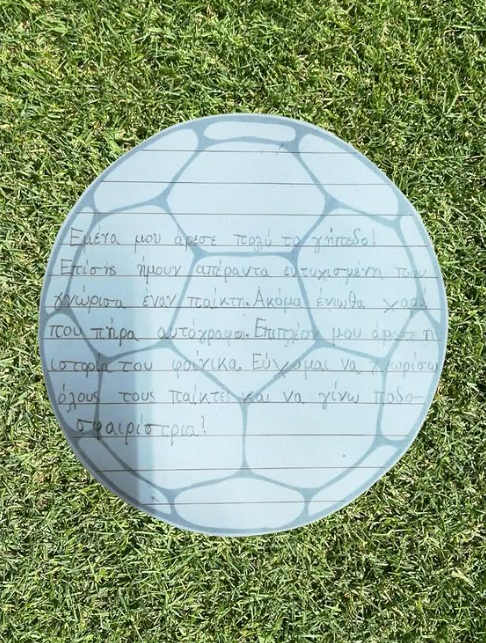 Εμένα μου άρεσε πολύ το γήπεδο!
Επίσης ήμουν απέραντα ευτυχισμένη που
γνώρισα έναν παίκτη. Ακόμα ένιωθα χαρά
που πήρα αυτόγραφο. Επιπλέον μου άρεσε η
ιστορία του φοίνικα. Εύχομαι να γνωρίσω
όλους τους παίκτες και να γίνω ποδο-
σφαιρίστρια!